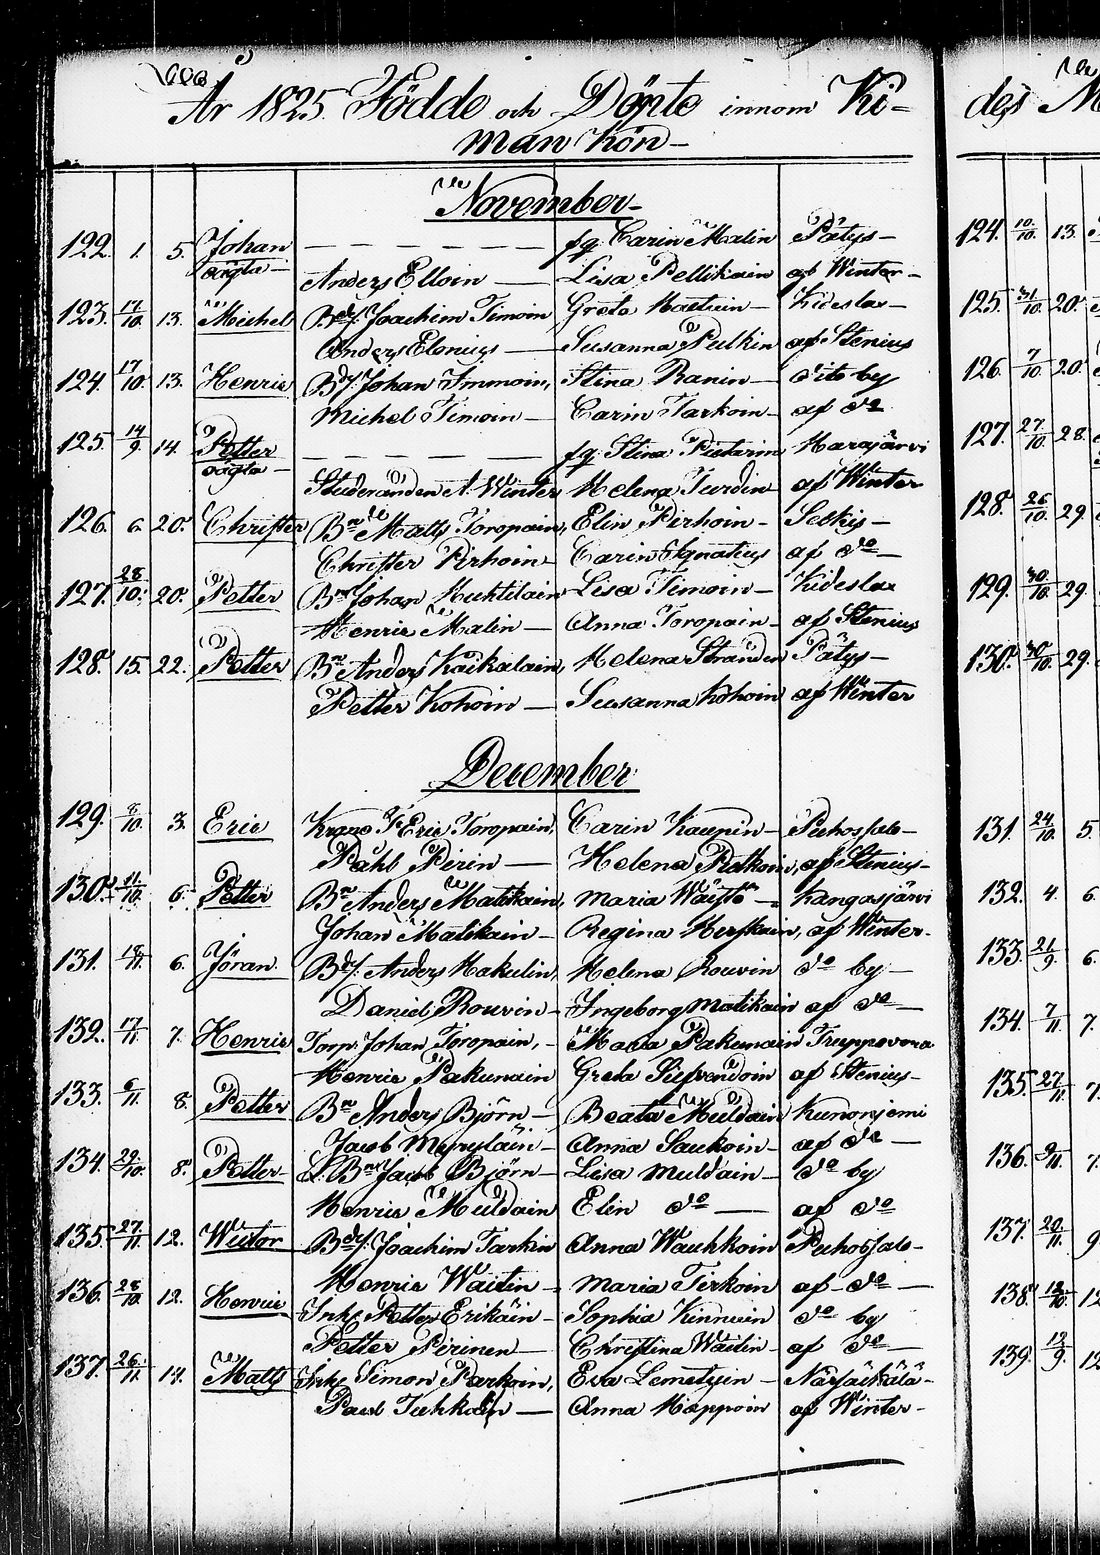 År 1825 Födde och Döpte innom Ki-
man kön
des M
November
122. 1. 5. Johan — — — — — — fq. Carin Malin Pätys
oägta Anders Elloin Lisa Pellikain af Winter
123. 17/10. 13. Michel Bdr. Joachim Timoin Greta Kideslax
Anders Elenius Susanna Pulkin af Stenius
124. 17/10. 13. Henric Bdr. Johan Immoin, Stina Ranin dito by
Michel Timoin Carin Tarkoin af do
125. 14/9. 14. Petter — — — — — — fq. Stina Marasjärvi
oägta Studeranden A. Winter Helena Turdin af Winter
126. 6. 20. Christer Bn Matts Toropain, Elin Pirhoin Selkis
Christer Pirhoin Carin Ignatius af do
127. 28/10. 20. Petter Bn Johan Huhtilain Lisa Timoin Kideslax
Henric Malin Anna Toropain af Stenius
128. 15. 22. Petter Bn Anders Kaikalain, Helena Stranden Pätys
Petter Kohoin Susanna Kohoin af Winter
December
129. 8/10. 3. Eric Eric Toropain, Carin Kaupin Puhossalo
Påhl Pirin Helena af Stenius
130. 11/10. 6. Petter Bn Anders Matikain, Maria Kangasjärvi
Johan Matikain Regina Herskain, af Winter
131. 18/11. 6. Jöran Bdr. Anders Hakulin, Helena Rouvin do by
Daniel Rouvin Ingeborg Matikain af do
132. 17/11. 7. Henric Torp. Johan Toropain, Maria Pakunain Truppovara
Henric Pakunain Greta af Stenius
133. 6/11. 8. Petter Bn Anders Björn Beata Muldain Kunonjemi
Jacob Myryläin Anna Saukoin af do
134. 29/10. 8. Petter L. Bn Jacob Björn Lisa Muldain do by
Henric Muldain Elin do af do
135. 27/11. 12. Wictor Bdr. Joachim Tarkin Anna Wauhkoin Puhossalo
Henric Waitin Maria Tirkoin af do
136. 28/10. 12. Henric Inhs. Petter Erikäin Sophia Kinnuin do by
Petter Pirinen Christina Waitin af do
137. 26/11. 14. Matts Inhs. Simon Parkoin, Eva Lemetyin Närsäkälä
Paul Tuhkain Anna Happoin af Winter
124. 10/10. 13.
125. 31/10. 20.
126. 7/10. 20.
127. 27/10. 28.
128. 26/10. 29.
129. 30/10. 29.
130. 30/10. 29.
131. 24/10. 5.
132. 4. 6.
133. 21/9. 6.
134. 7/11. 7.
135. 27/11. 7.
136. 7.
137. 20/11. 9
138. 12/10. 12
139. 12/9. 12